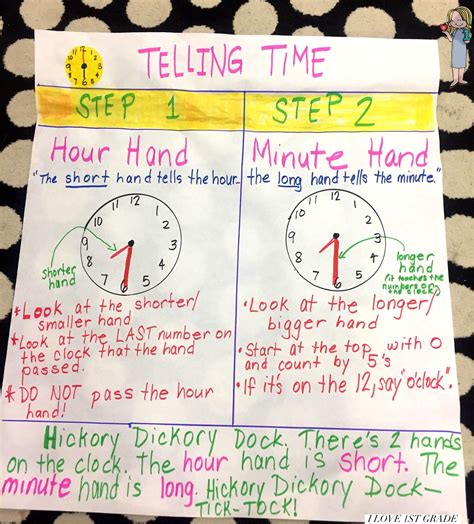 TELLING TIME
STEP 1
Hour Hand
"The short hand tells the hour
12
11
10
1
2
9
3
8
4
7
6
5
shorter
hand
*Look at the shorter/
smaller hand
*Look at the LAST number on
the clock that the hand
passed.
*DO NOT pass the hour
hand!
STEP 2
Minute Hand
the long hand tells the minute."
12
11
10
1
2
9
3
8
4
7
6
5
longer
hand
(it touches the
numbers on
the clock)
•Look at the longer/
bigger hand
•Start at the top with 0
and count by 5's
•If it's on the 12, say "o'clock".
Hickory Dickory Dock. There's 2 hands
on the clock. The hour hand is short. The
minute hand is long. Hickory Dickory Dock-
TICK-TOCK!
I LOVE 1ST GRADE